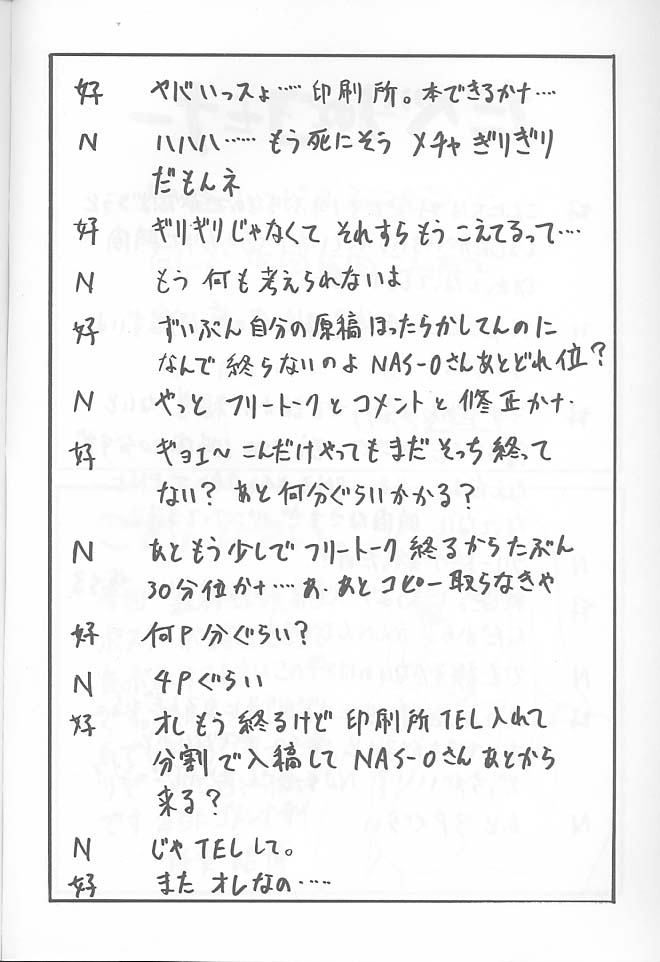 好 ヤバいっスょ……印刷所。本できるかナ…
N ハハハ……もう死にそう メチャぎりぎり
だもんネ
好 ギリギリじゃなくて それすらもうこえてるって…
N もう何も考えられないよ
好 ずいぶん自分の原稿ほったらかしてんのに
なんで終らないのよ NAS-Oさんあとどれ位?
N やっと フリートークとコメントと修正かナ.
好 ギョエ〜 こんだけやってもまだそっち終って
ない? あと何分ぐらいかかる?
N あともう少しでフリートーク終るからたぶん
30分位かナ…. あ、あとコピー取らなきゃ
好 何P分ぐらい?
N 4Pぐらい
好 オレもう終るけど 印刷所TEL入れて
分割で入稿して NAS-Oさんあとから
来る?
N じゃTELして。
好 また オレなの……